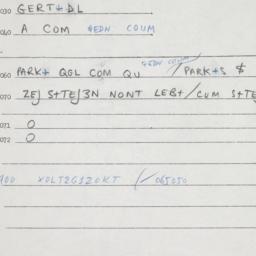 030 GERT+DL
040 A COM GEDN COUM
060 PARK+ QGL COM QU GEDN COUM / PARK+S $
070 ZEJ S+TEJ3N NONT LEB+/CUM S+TE
071 O
072 O
400 XOLTZG1ZOKT / 065050